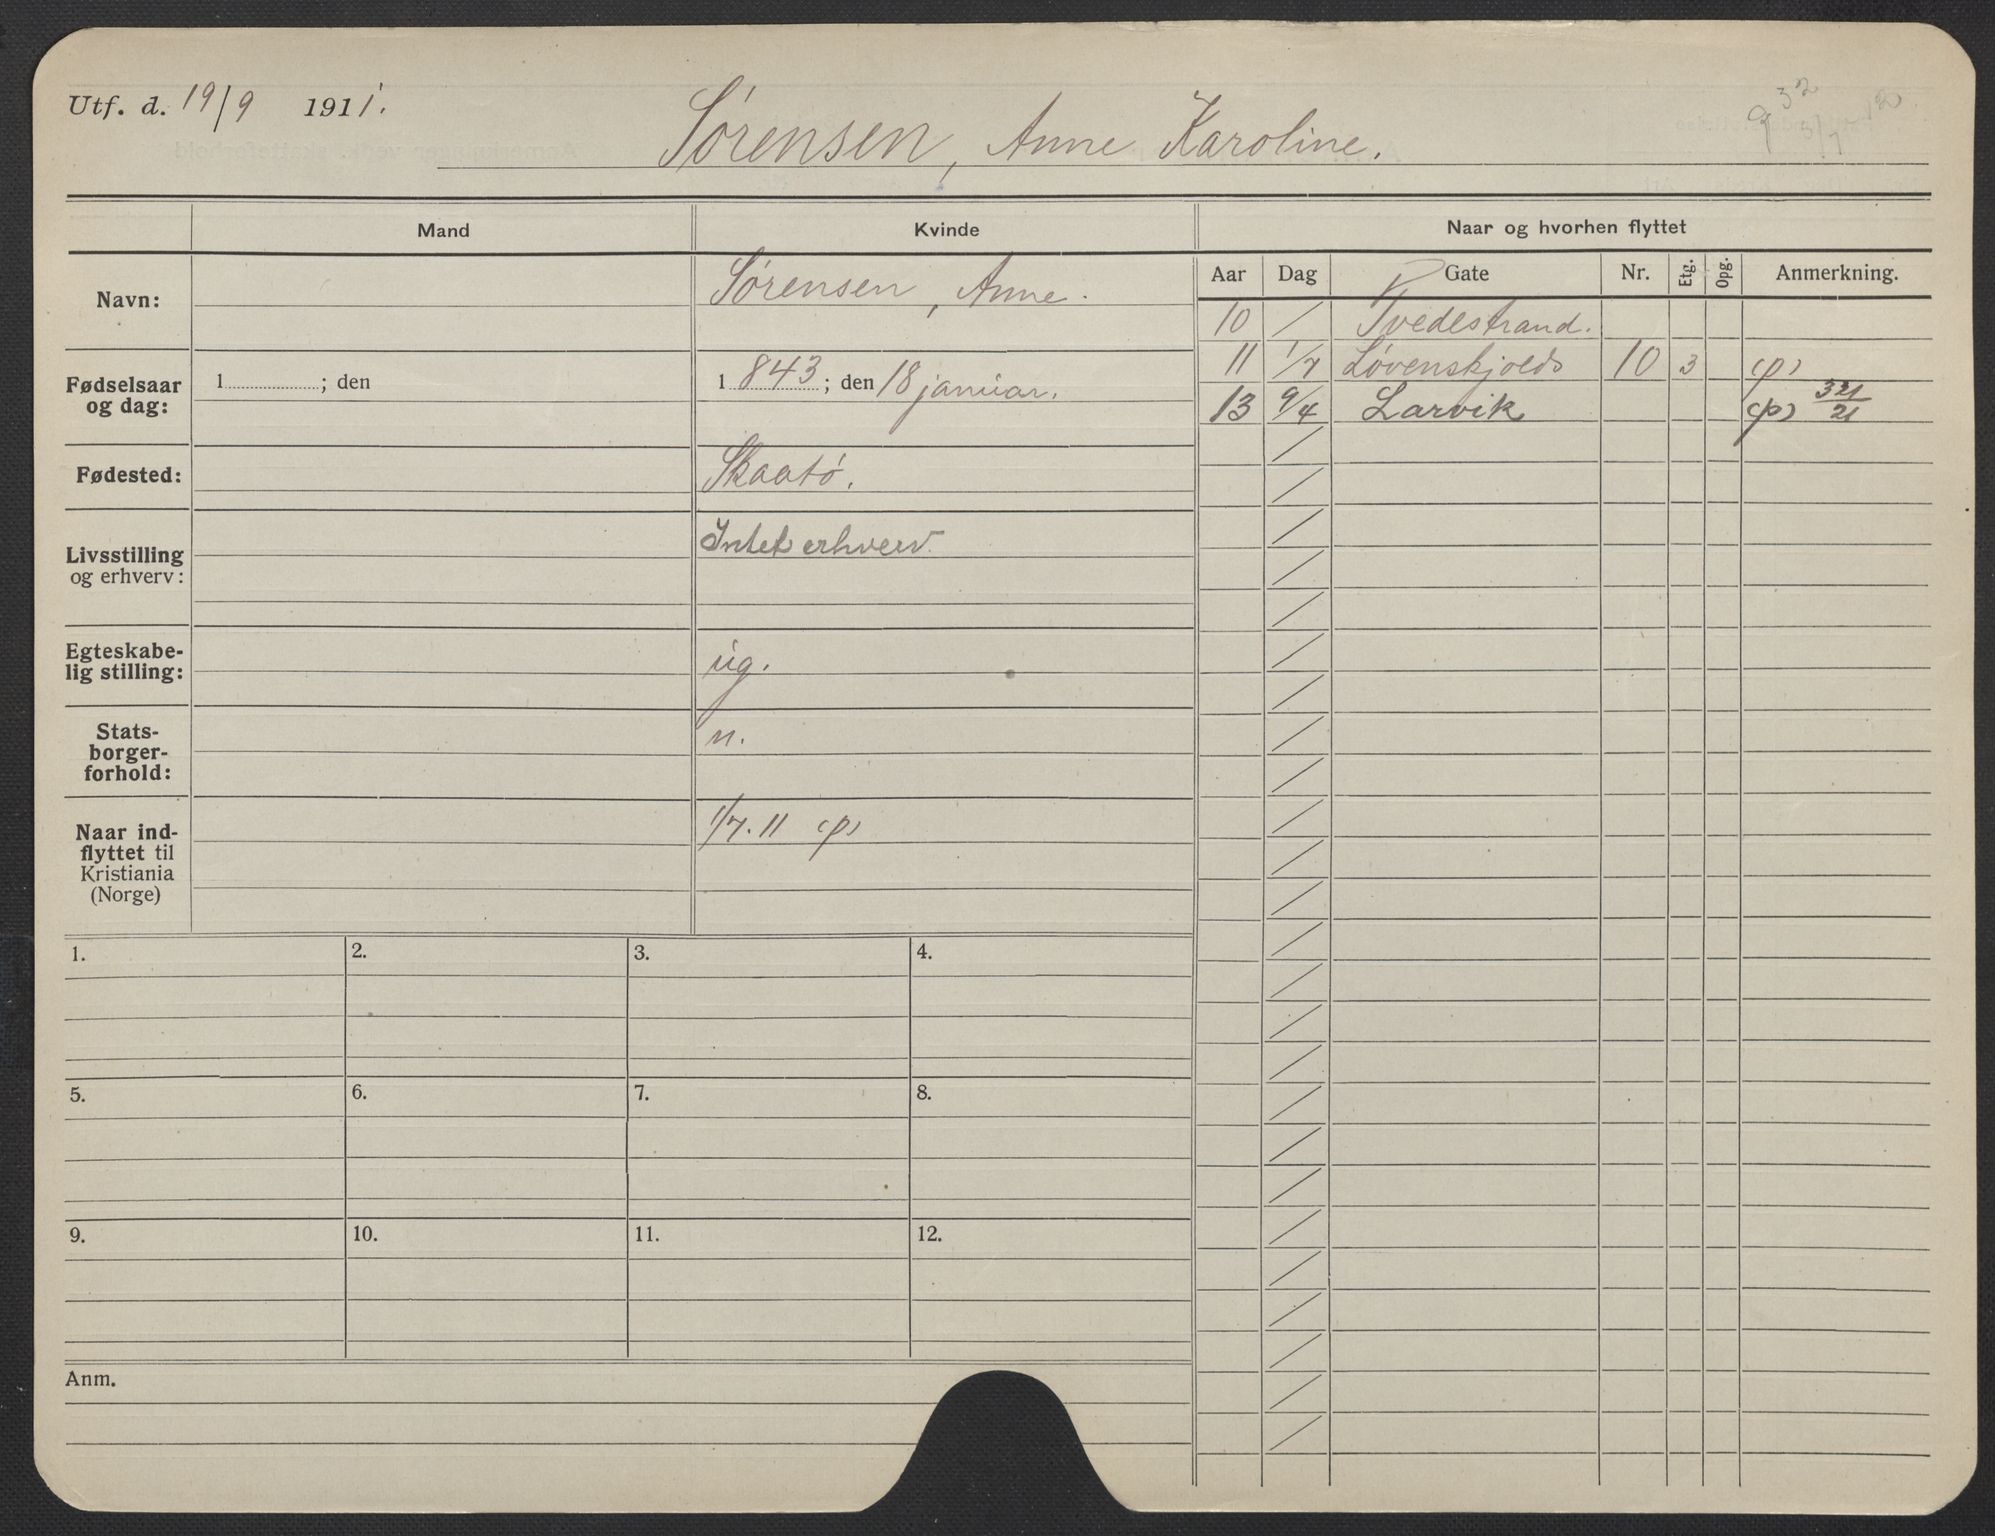 Utf. d. 19/9 1911.
Sörensen, Anne Karoline.
Mand
Kvinde
Naar og hvorhen flyttet
Navn:
Sörensen, Anne.
Fødselsaar og dag:
1 ; den
1 843 ; den 18 januar.
Fødested:
Skaatö.
Livsstilling og erhverv:
Intet erhverv.
Egteskabe-
lig stilling:
ug.
Stats-
borger-
forhold:
n.
Naar ind-
flyttet til
Kristiania
(Norge)
1/7. 11 (p)
Aar Dag Gate Nr. Etg. Opg. Anmerkning.
10 / Tvedestrand.
11 1/7 Lövenskjolds 10 3 (p)
13 9/4 Larvik (p) 321/21
1. 2. 3. 4.
5. 6. 7. 8.
9. 10. 11. 12.
Anm.